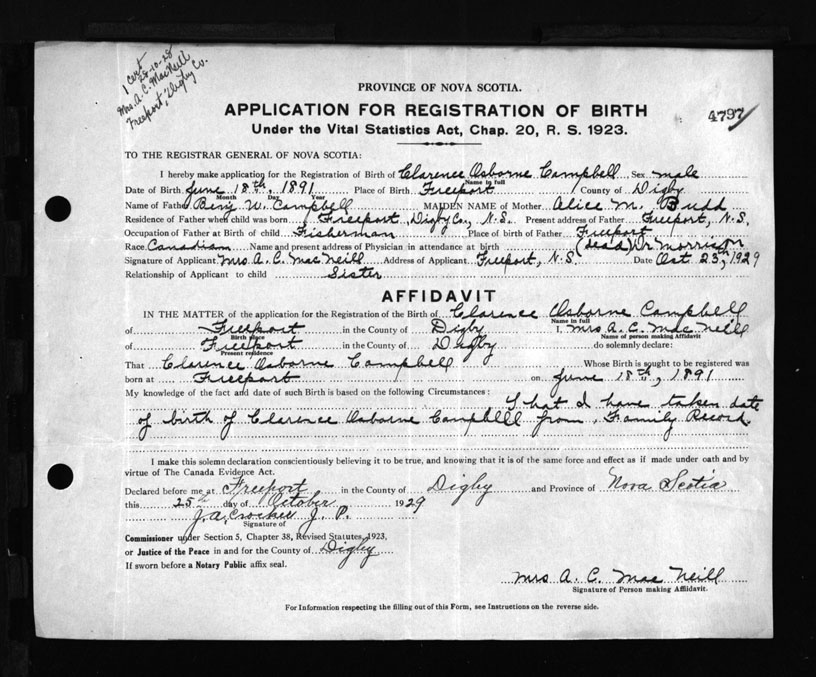 1 Cert
28-10-29
Mrs. A. C. MacNeill
Freeport, Digby Co.
PROVINCE OF NOVA SCOTIA.
APPLICATION FOR REGISTRATION OF BIRTH
4797
Under the Vital Statistics Act, Chap. 20, R. S. 1923.
TO THE REGISTRAR GENERAL OF NOVA SCOTIA:
I hereby make application for the Registration of Birth of Clarence Osborne Campbell Sex male
Name in full
Date of Birth June 18th, 1891 Place of Birth Freeport County of Digby
Month Day Year
Name of Father Benj W. Campbell MAIDEN NAME of Mother Alice M. Budd
Residence of Father when child was born Freeport, Digby Co., N.S. Present address of Father Freeport, N.S.
Occupation of Father at Birth of child Fisherman Place of birth of Father Freeport
Race Canadian Name and present address of Physician in attendance at birth (dead) Dr. Morrison
Signature of Applicant Mrs A. C. Mac Neill Address of Applicant Freeport, N.S. Date Oct 25th, 1929
Relationship of Applicant to child Sister
AFFIDAVIT
IN THE MATTER of the application for the Registration of the Birth of Clarence Osborne Campbell
Name in full
of Freeport in the County of Digby I, Mrs A. C. Mac Neill
Birth place Name of person making Affidavit
of Freeport in the County of Digby do solemnly declare:
Present residence
That Clarence Osborne Campbell Whose Birth is sought to be registered was
born at Freeport on June 18th, 1891
My knowledge of the fact and date of such Birth is based on the following Circumstances:
That I have taken date
of birth of Clarence Osborne Campbell from Family Record.
I make this solemn declaration conscientiously believing it to be true, and knowing that it is of the same force and effect as if made under oath and by
virtue of The Canada Evidence Act.
Declared before me at Freeport in the County of Digby and Province of Nova Scotia
this 25th day of October 1929
J. A. Crocker J. P.
Signature of
Commissioner under Section 5, Chapter 38, Revised Statutes, 1923,
or Justice of the Peace in and for the County of Digby
If sworn before a Notary Public affix seal.
Mrs A. C. Mac Neill
Signature of Person making Affidavit.
For Information respecting the filling out of this Form, see Instructions on the reverse side.